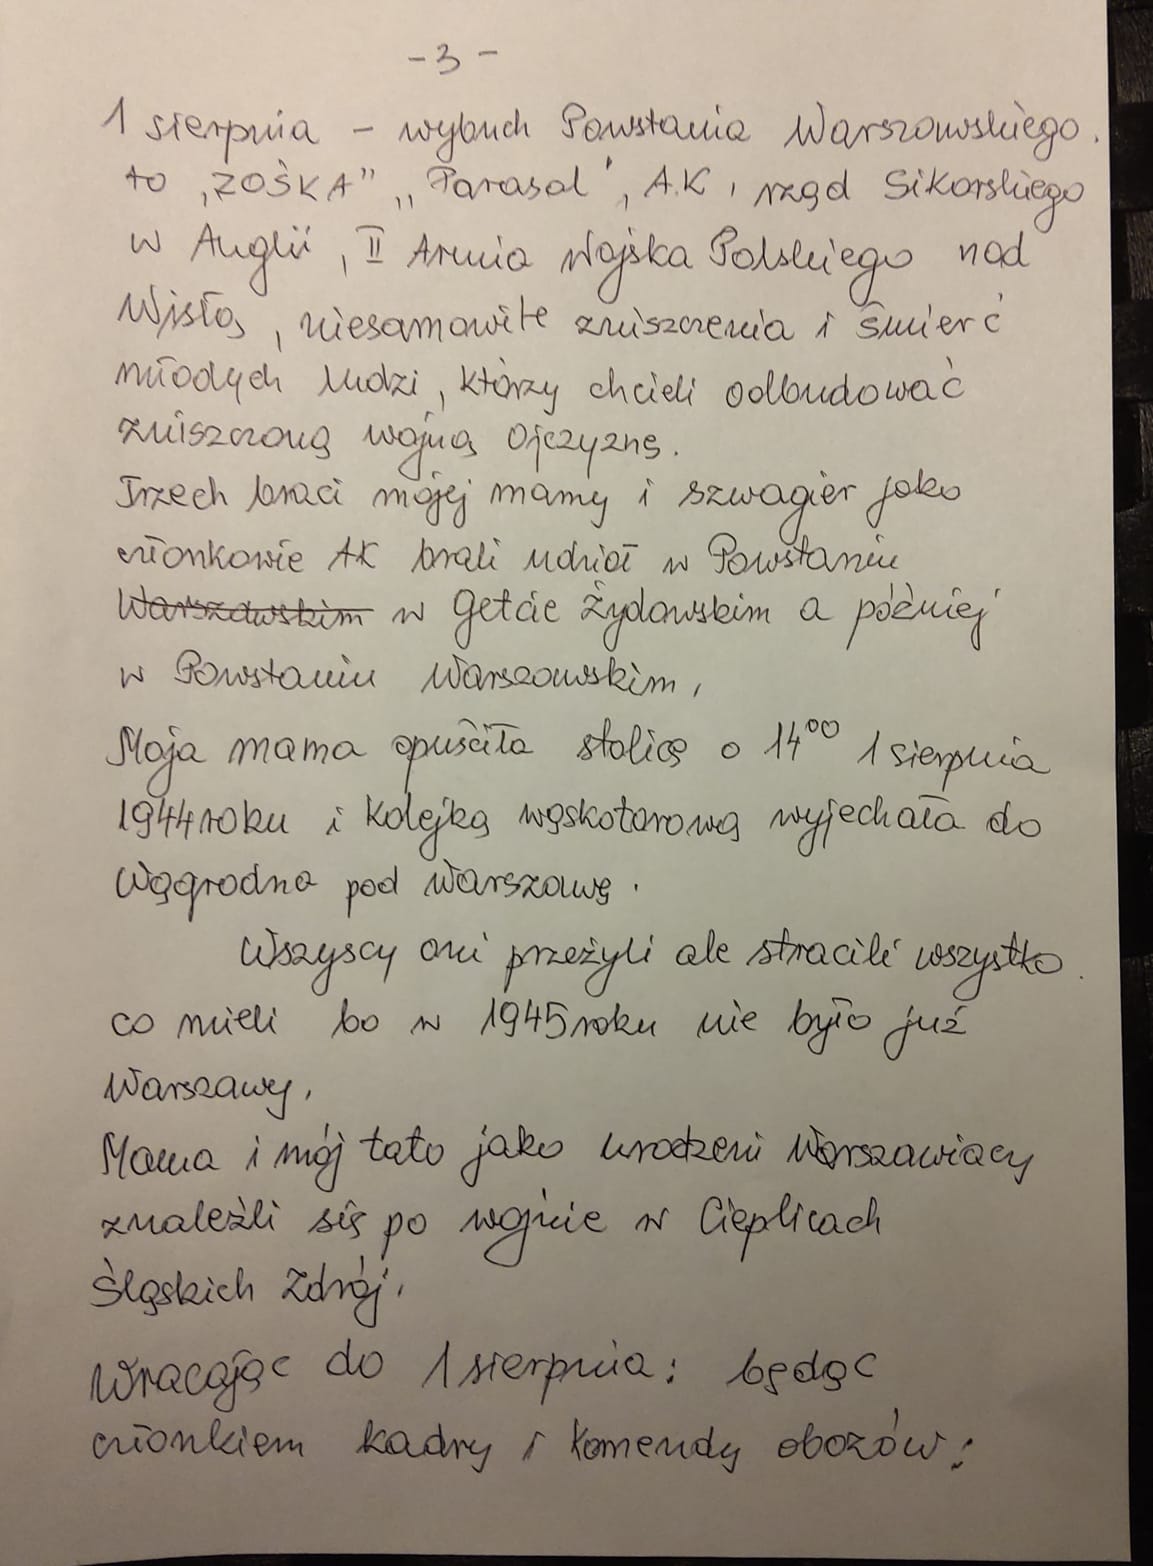 - 3 -
1 sierpnia - wybuch Powstania Warszawskiego.
to „ZOŚKA” „Parasol”, A.K, rząd Sikorskiego
w Anglii, II Armia Wojska Polskiego nad
Wisłą, niesamowite zniszczenia i śmierć
młodych ludzi, którzy chcieli odbudować
zniszczoną wojną Ojczyznę.
Trzech braci mojej mamy i szwagier jako
członkowie AK brali udział w Powstaniu
Warszawskim w Getcie Żydowskim a później
w Powstaniu Warszawskim,
Moja mama opuściła stolicę o 14⁰⁰ 1 sierpnia
1944 roku i kolejką wąskotorową wyjechała do
Wągrodna pod Warszawę.
Wszyscy oni przeżyli ale stracili wszystko
co mieli bo w 1945 roku nie było już
Warszawy,
Mama i mój tato jako urodzeni Warszawiacy
znaleźli się po wojnie w Cieplicach
Śląskich Zdrój,
Wracając do 1 sierpnia: będąc
członkiem kadry i komendy obozów: